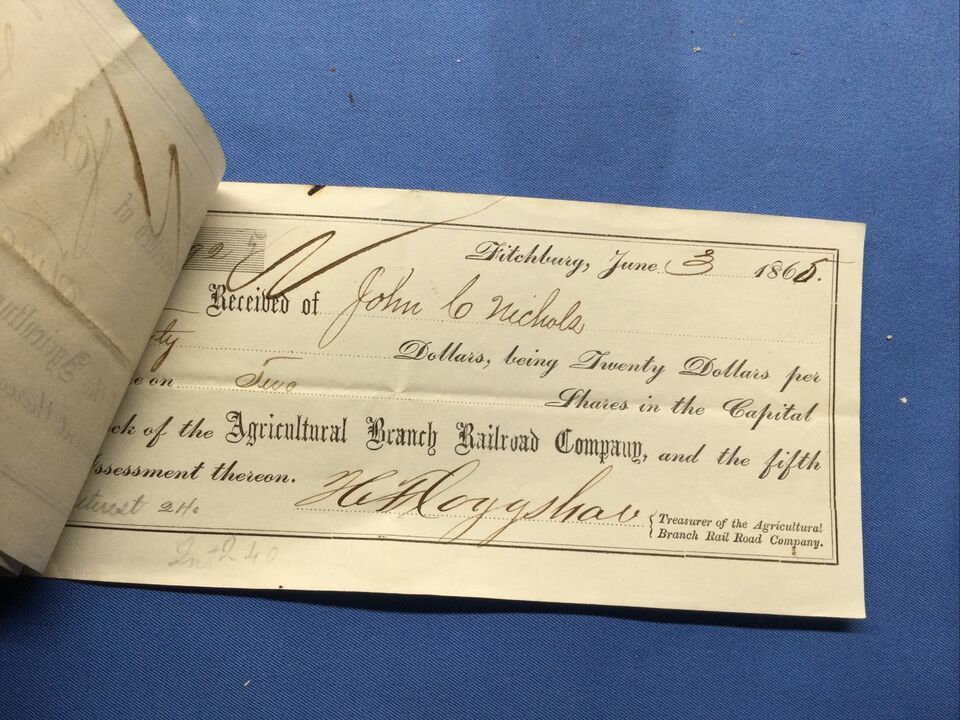 92
Fitchburg, June 3 1865.
Received of John C Nichols
ty Dollars, being Twenty Dollars per
e on Two Shares in the Capital
ck of the Agricultural Branch Railroad Company, and the fifth
ssessment thereon.
Treasurer of the Agricultural
Branch Rail Road Company.
terest 24
Int 2 40